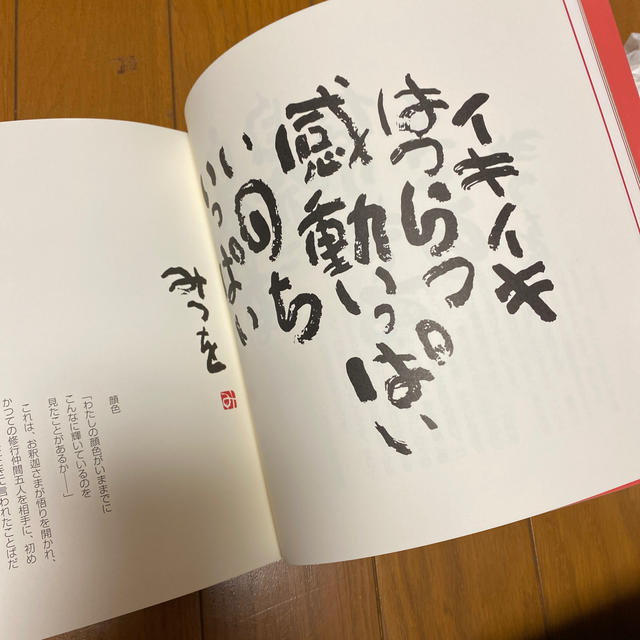 イキイキ
はつらつ
感動いっぱい
いのち
いっぱい
みつを
顔色
「わたしの顔色がいままでに
こんなに輝いているのを
見たことがあるか——」
これは、お釈迦さまが悟りを開かれ、
かつての修行仲間五人を相手に、初め
に言われたことばだ